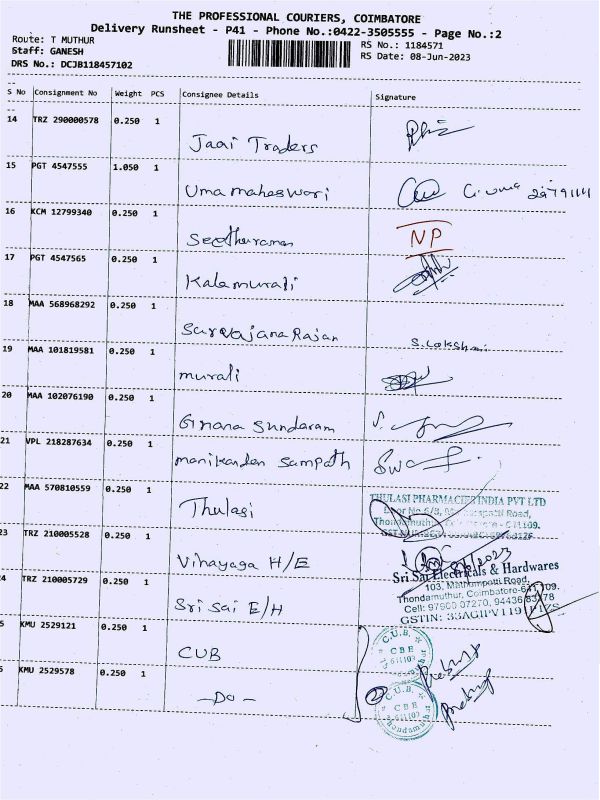 THE PROFESSIONAL COURIERS, COIMBATORE
Delivery Runsheet - P41 - Phone No.:0422-3505555 - Page No.:2
Route: T MUTHUR
Staff: GANESH
DRS No.: DCJB118457102
RS No.: 1184571
RS Date: 08-Jun-2023
S No Consignment No Weight PCS Consignee Details Signature
14 TRZ 290000578 0.250 1
Jaai Traders
15 PGT 4547555 1.050 1
Uma maheswari
16 KCM 12799340 0.250 1
Seetharaman NP
17 PGT 4547565 0.250 1
Kalamurali
18 MAA 568968292 0.250 1
Sarvajana Rajan
19 MAA 101819581 0.250 1
murali
20 MAA 102076190 0.250 1
Gnana Sundaram
21 VPL 218287634 0.250 1
manikanden Sampath
22 MAA 570810559 0.250 1
Thulasi
THULASI PHARMACIES INDIA PVT LTD
23 TRZ 210005528 0.250 1
Vinayaga H/E
Sri Sai Electricals & Hardwares
103, Mathampatti Road,
Thondamuthur, Coimbatore-641109.
Cell: 97900 07270, 94436 83778
24 TRZ 210005729 0.250 1
Sri Sai E/H
5 KMU 2529121 0.250 1
CUB
C.U.B.
CBE
641109
6 KMU 2529578 0.250 1
-Do-
C.U.B.
CBE
641109
Thondamuthur